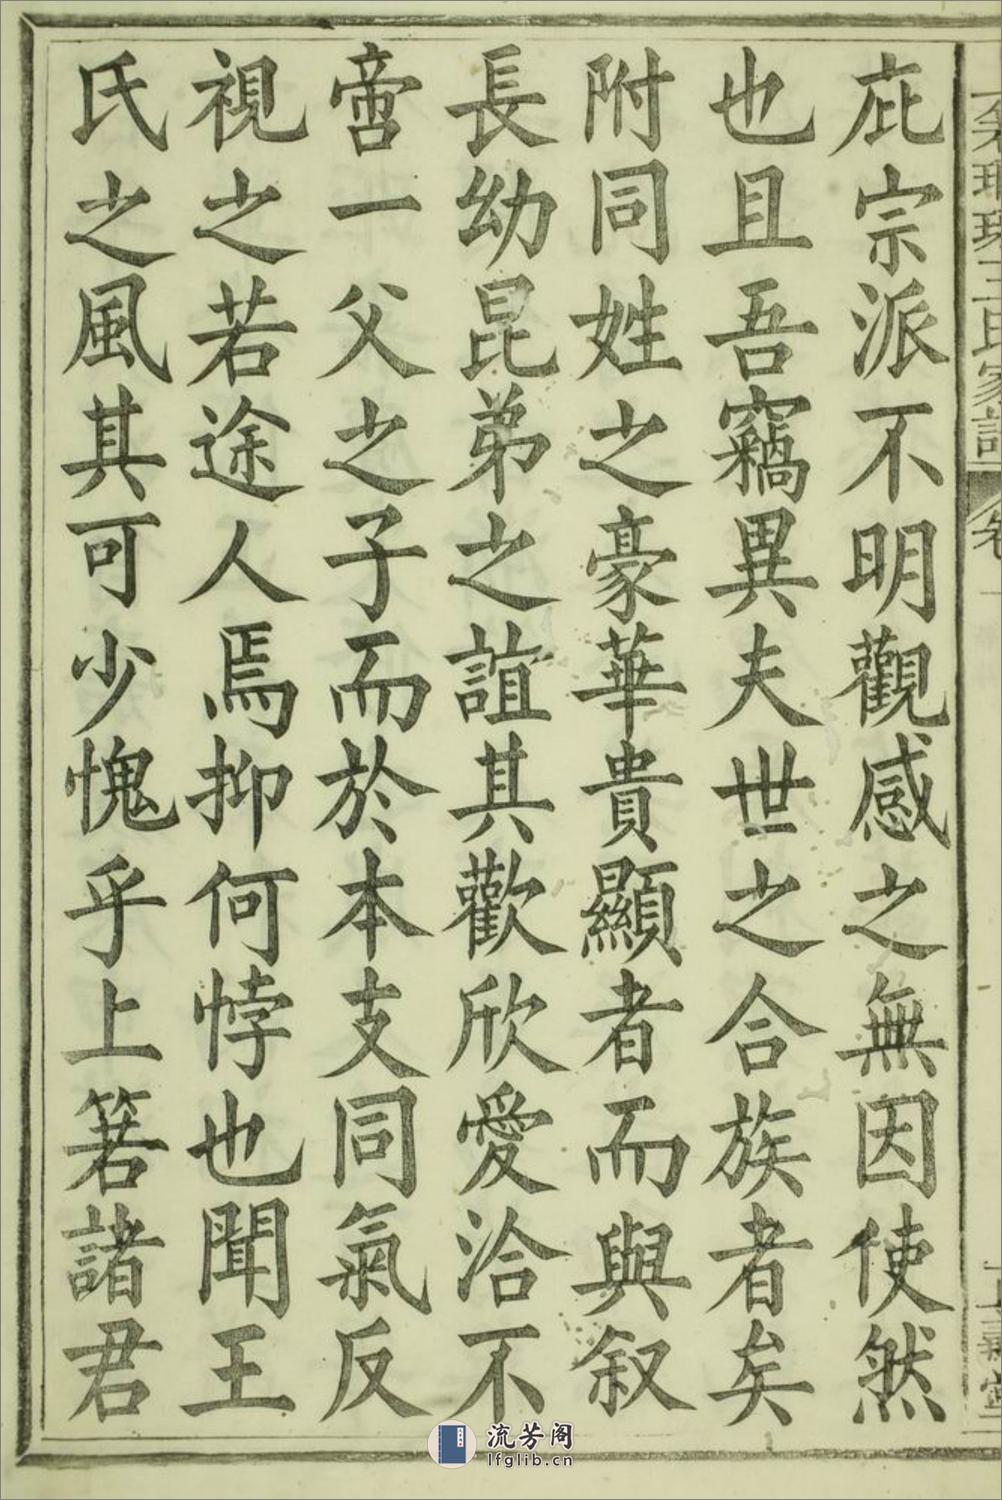 庇宗派不明觀感之無因使然
也且吾竊異夫世之合族者矣
附同姓之豪華貴顯者而與叙
長幼昆弟之誼其歡欣愛洽不
啻一父之子而於本支同氣反
視之若途人焉抑何悖也聞王
氏之風其可少愧乎上箬諸君
流芳阁
lfglib.cn